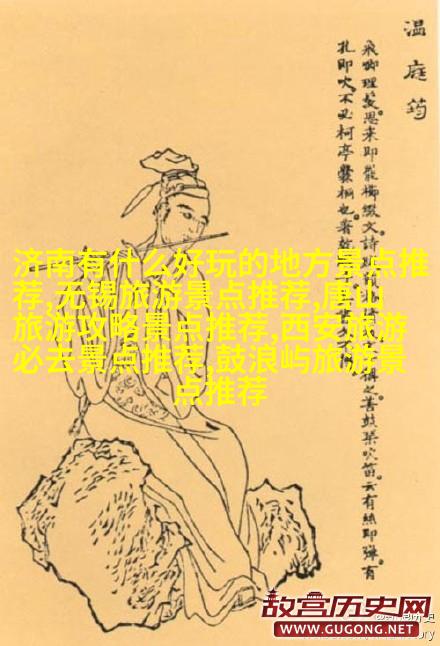 温庭筠
飛卿理髮思來即罷櫛綴文詩 稱之善鼓琴吹笛云有絲即彈有
孔即吹不必柯亭爨桐也著乾
济南有什么好玩的地方景点推
荐,无锡旅游景点推荐,唐山
旅游攻略景点推荐,西安旅游
必去景点推荐,鼓浪屿旅游景
点推荐
故宫历史网
WWW.GUGONG.NET